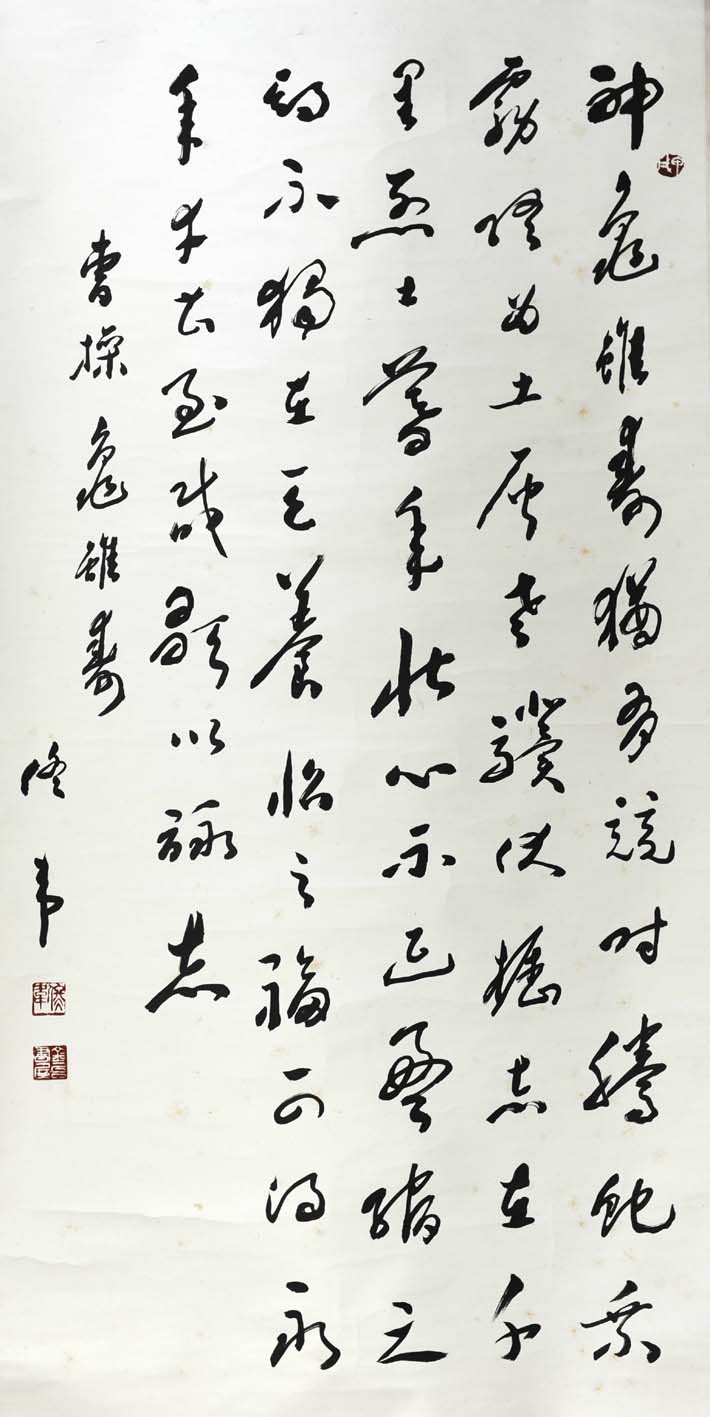 神龜雖壽猶有竟时騰蛇乘
霧終为土灰老驥伏櫪志在千
里烈士暮年壯心不已盈縮之
期不獨在天養怡之福可得永
年幸甚至哉歌以詠志
曹操龜雖壽
佟韦